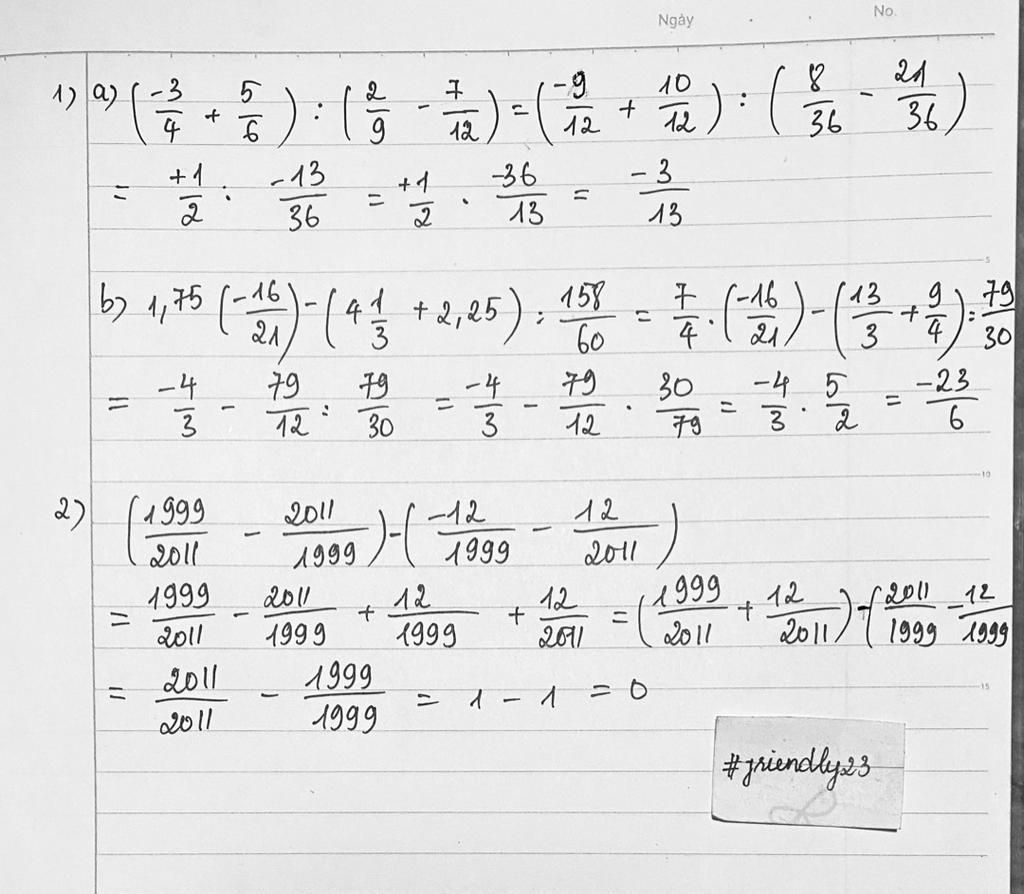 Ngày . . No.
1) a) (-3/4 + 5/6) : (2/9 - 7/12) = (-9/12 + 10/12) : (8/36 - 21/36)
= +1/2 : -13/36 = +1/2 . -36/13 = -3/13
5
b) 1,75 (-16/21) - (4 1/3 + 2,25) : 158/60 = 7/4 . (-16/21) - (13/3 + 9/4) : 79/30
= -4/3 - 79/12 : 79/30 = -4/3 - 79/12 . 30/79 = -4/3 . 5/2 = -23/6
10
2) (1999/2011 - 2011/1999) - (-12/1999 - 12/2011)
= 1999/2011 - 2011/1999 + 12/1999 + 12/2011 = (1999/2011 + 12/2011) - (2011/1999 - 12/1999
= 2011/2011 - 1999/1999 = 1 - 1 = 0
15
#friendly23